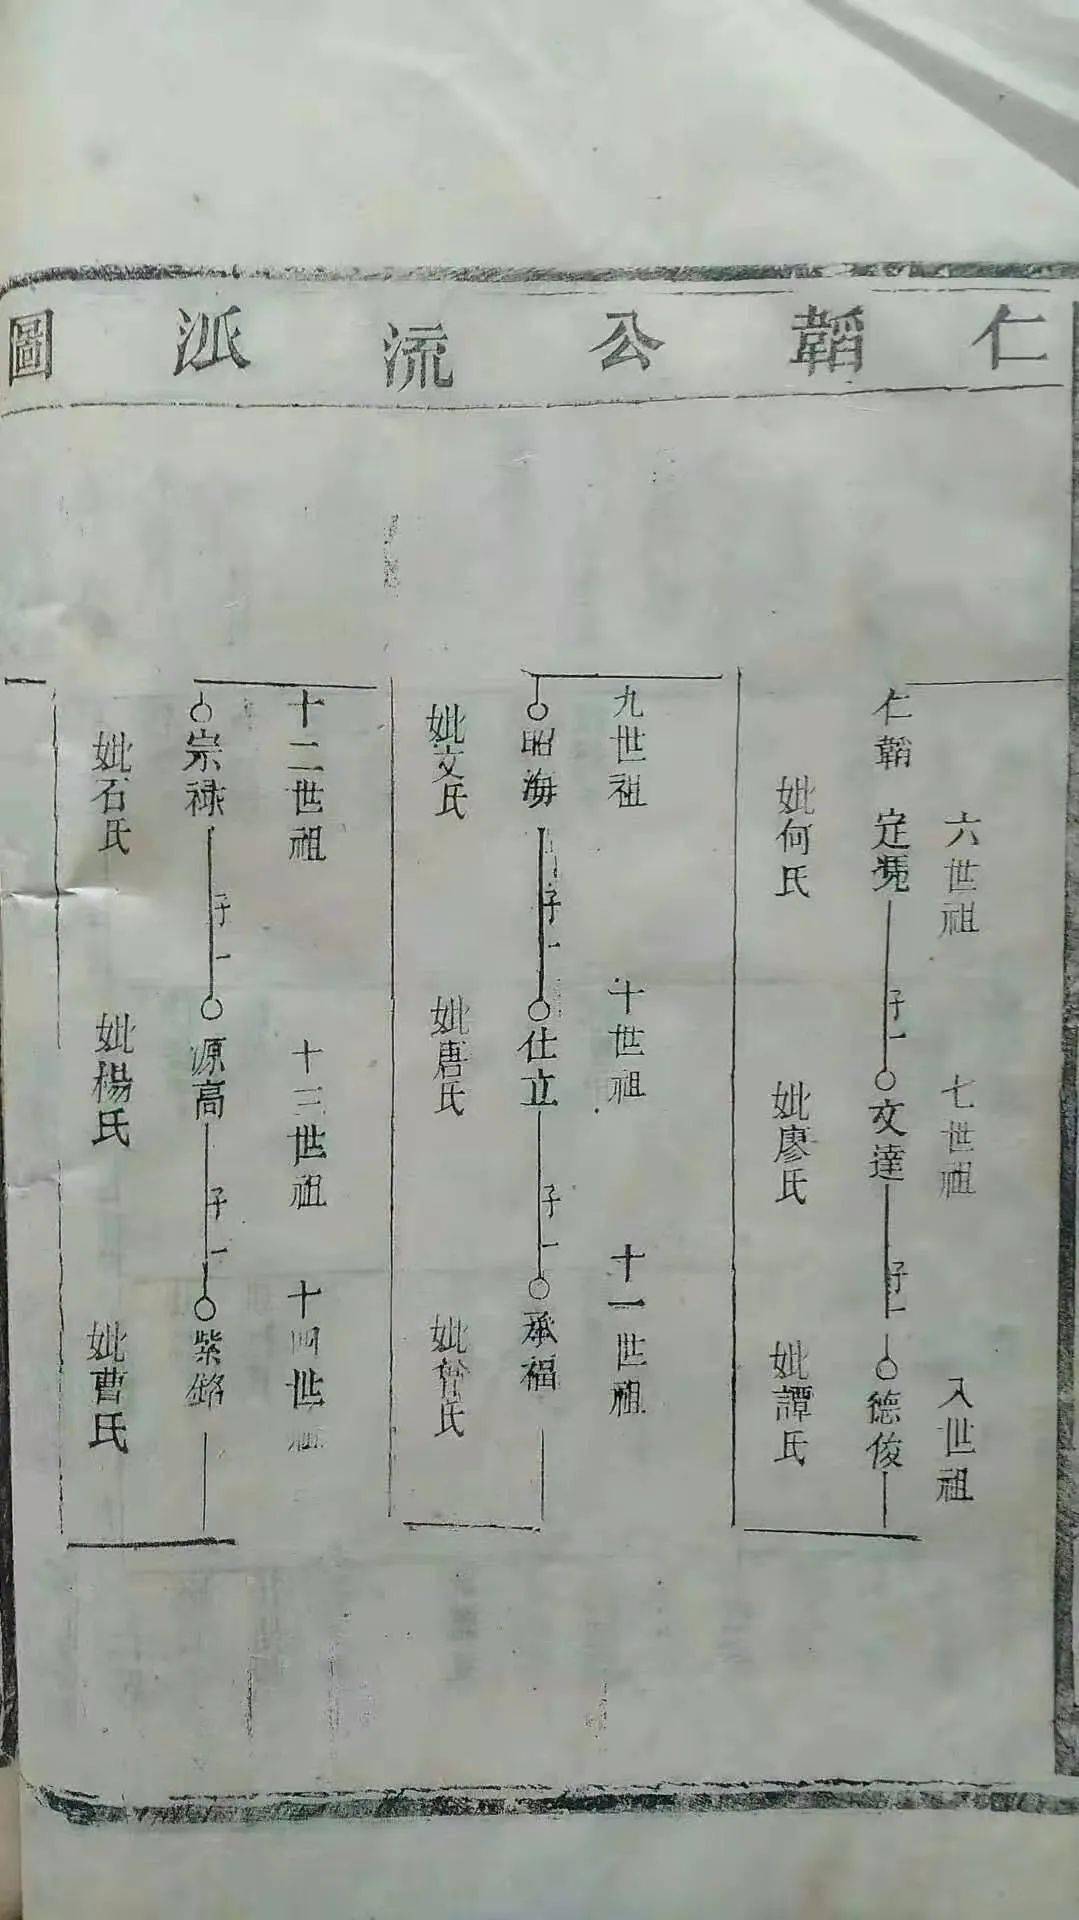 仁韜公流派圖
六世祖
七世祖
八世祖
仁韜 定
子一
文達
子一
德俊
妣何氏
妣廖氏
妣譚氏
九世祖
十世祖
十一世祖
昭海
子一
仕立
子一
承福
妣文氏
妣唐氏
妣曾氏
十二世祖
十三世祖
十四世祖
宗祿
子一
源高
子一
紫
妣石氏
妣楊氏
妣曹氏